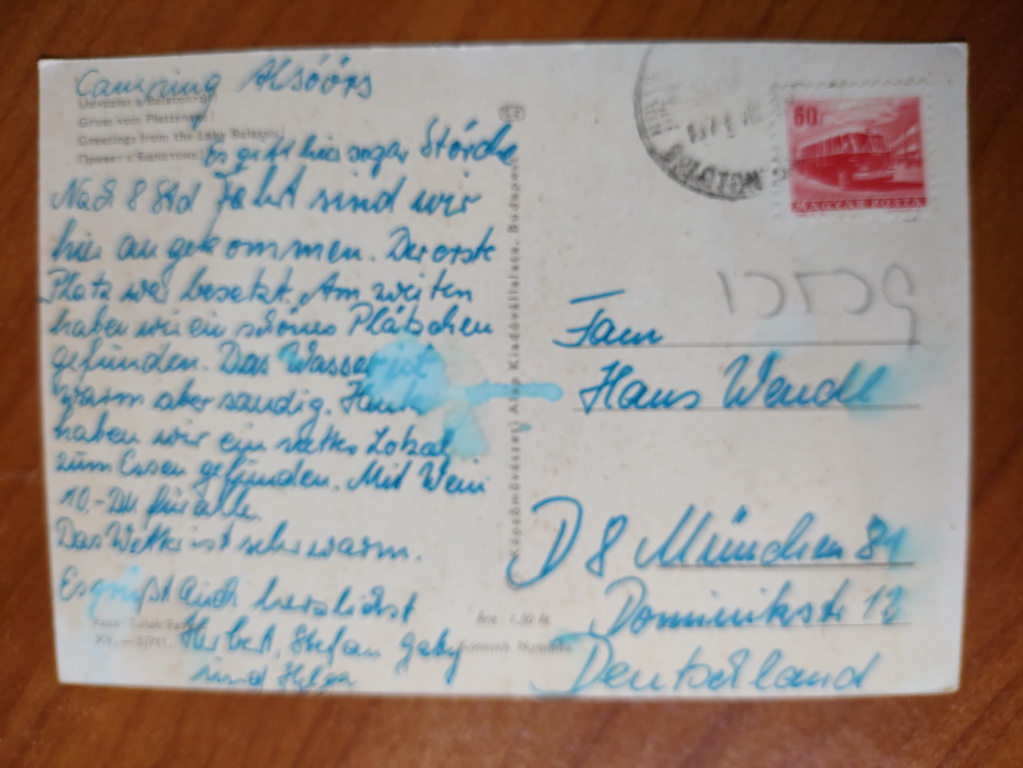 Camping Alsóörs
Üdvözlet a Balatonról!
Gruss vom Plattensee!
Greetings from the Lake Balaton!
Привет с Балатона!
Es gibt hier sogar Störche
Nach 8 Std Fahrt sind wir
hier angekommen. Der erste
Platz war besetzt. Am zweiten
haben wir ein schönes Plätschen
gefunden. Das Wasser ist
warm aber sandig. Heute
haben wir ein nettes Lokal
zum Essen gefunden. Mit Wein
10.- DM für alle.
Das Wetter ist sehr warm.
Es grüßt Euch herzlichst
Herbert, Stefan Gaby
und Helga
Ára: 1,20 Ft
Képzőművészeti Alap Kiadóvállalata, Budapest
60f
MAGYAR POSTA
Fam
Hans Wendl
D 8 München 81
Dominikstr 12
Deutschland